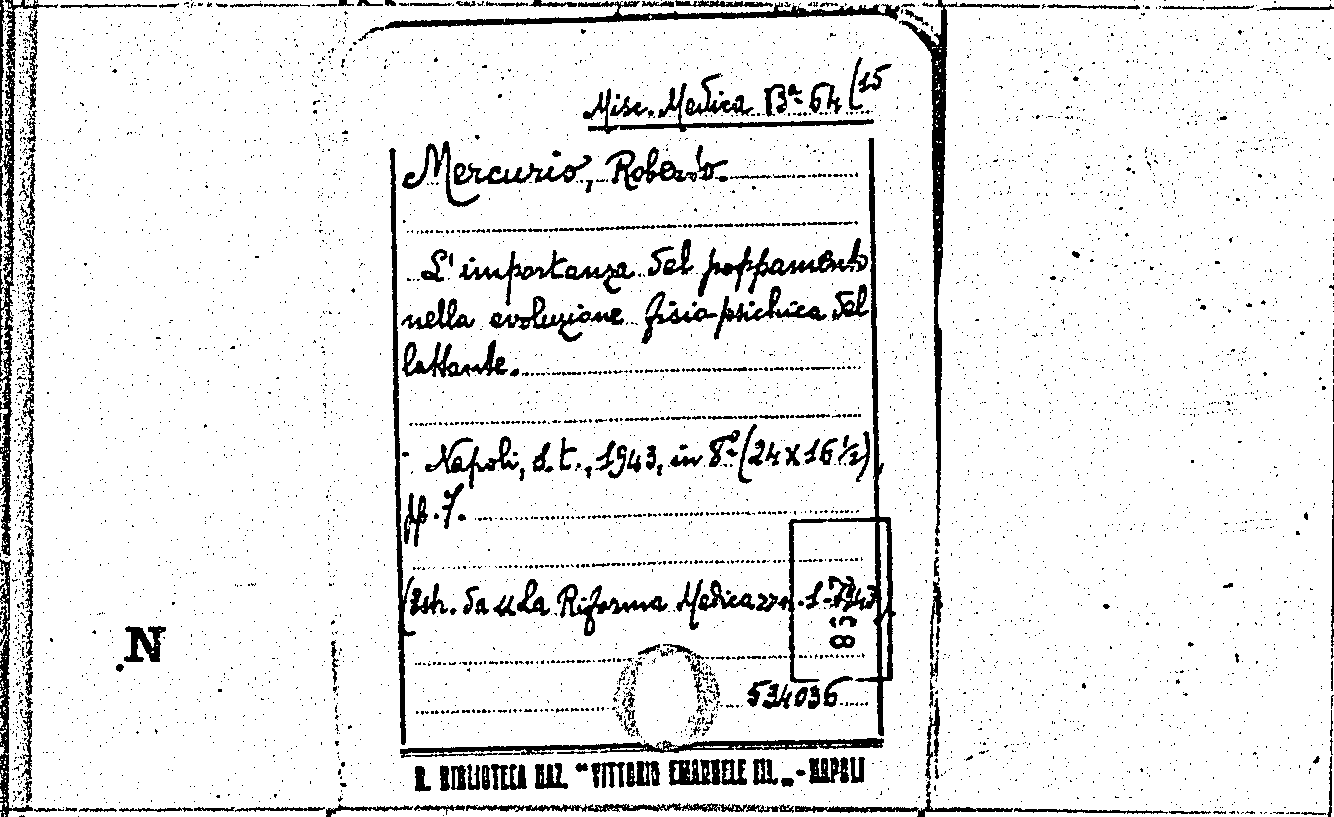 Misc. Medica Bª 64 (15
Mercurio, Roberto.
L'importanza del poppamento
nella evoluzione fisio-psichica del
lattante.
Napoli, s. t., 1943, in 8º (24 x 16 ½),
pp. 7.
(Estr. da "La Riforma Medica" n. 1-
534036
N
R. BIBLIOTECA NAZ. "VITTORIO EMANUELE III. „ - NAPOLI